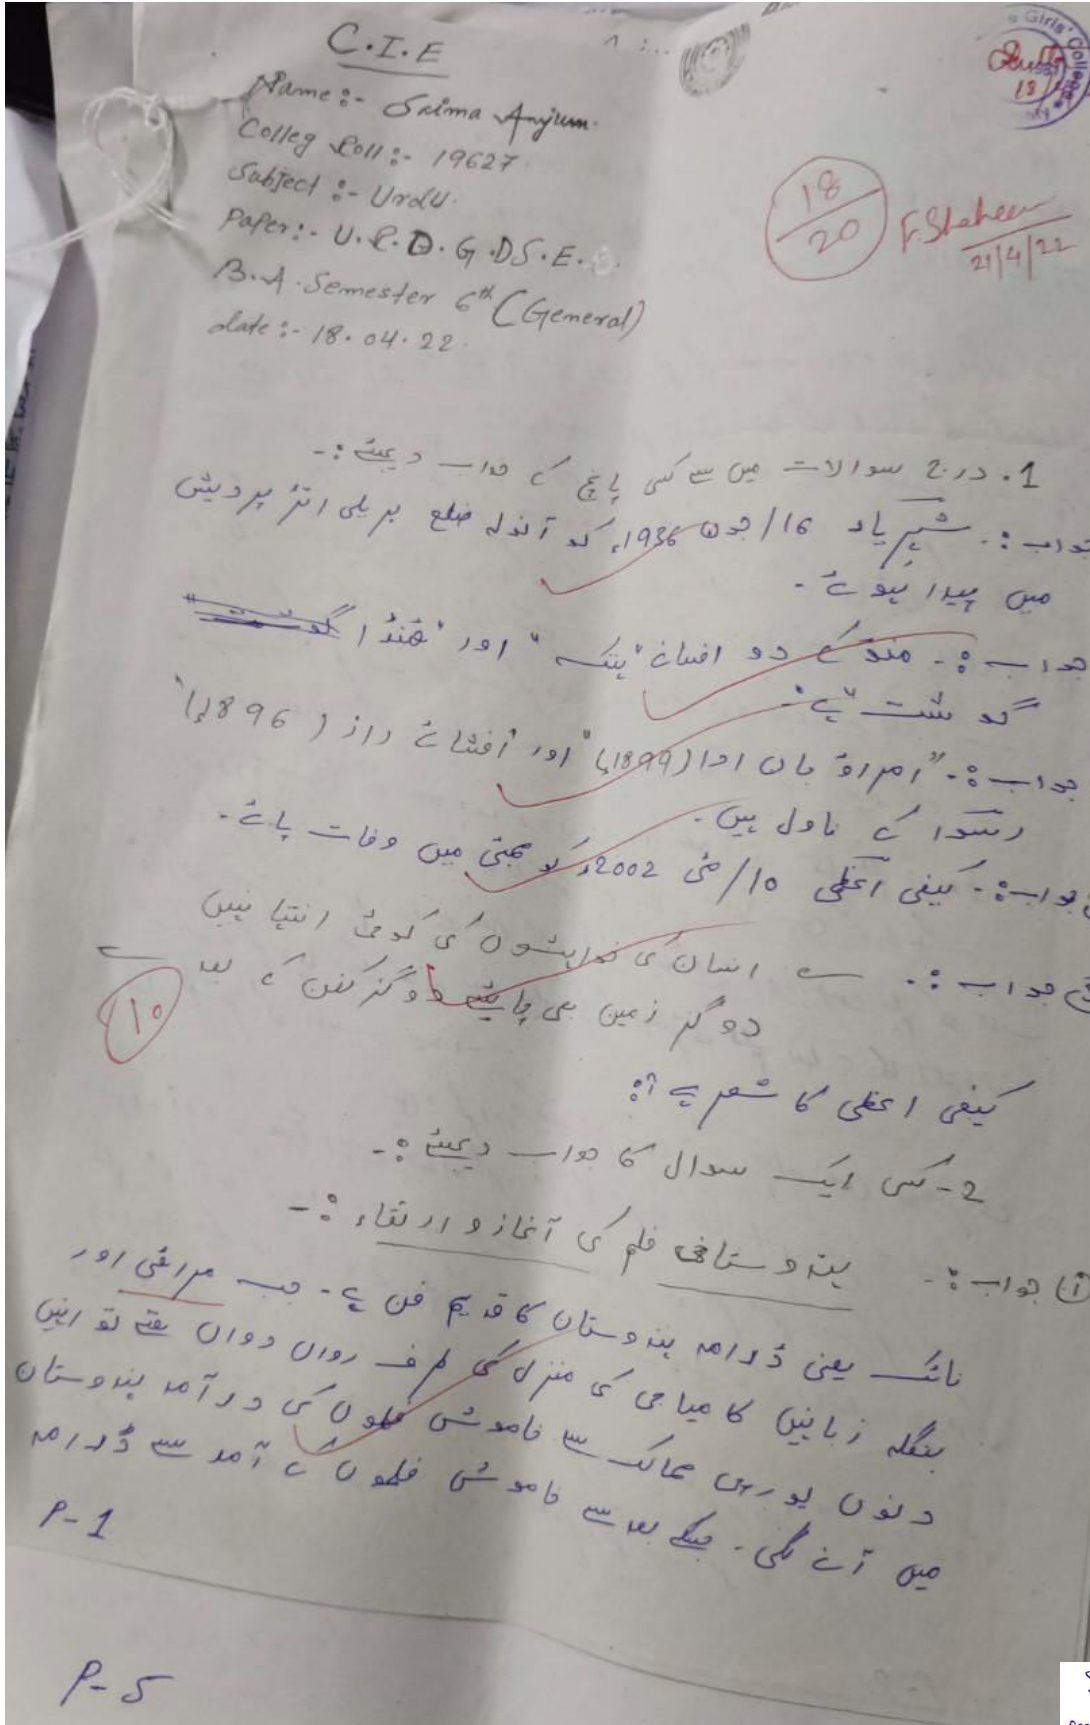 C.I.E
Name:- Saima Anjum.
Colleg Roll:- 19627.
Subject:- Urdu.
Paper:- U.R.D.G.DS.E.
B.A. Semester 6th (General)
date:- 18.04.22.
Girls' College
18
18/20
F. Shaheen
21/4/22
1. درج سوالات میں سے کسی پانچ کے جواب دیجئے :-
جواب :- شہریار 16/جون 1936ء کو آنولہ ضلع بریلی اتر پردیش
میں پیدا ہوئے۔
جواب :- منٹو کے دو افسانے "ہتک" اور "ٹھنڈا گوشت"
گوشت" ہے۔
جواب :- "امراؤ جان ادا (1899ء)" اور "افشائے راز (1896ء)"
رسوا کے ناول ہیں۔
جواب :- کیفی اعظمی 10/مئی 2002ء کو ممبئی میں وفات پائے۔
جواب :- ؎ انسان کی خواہشوں کی کوئی انتہا نہیں
دو گز زمین بھی چاہئے دو گز کفن کے بعد ؎
10
کیفی اعظمی کا شعر ہے:
2- کسی ایک سوال کا جواب دیجئے :-
جواب :- ہندوستانی فلم کی آغاز و ارتقاء :-
ناٹک یعنی ڈرامہ ہندوستان کا قدیم فن ہے۔ جب مراٹھی اور
بنگلہ زبانیں کامیابی کی منزل کی طرف رواں دواں تھے تو انہیں
دنوں یورپی ممالک سے خاموش فلموں کی درآمد ہندوستان
میں آنے لگی۔ جسکے بعد سے خاموش فلموں کے آمد سے ڈرامہ
P-1
P-5